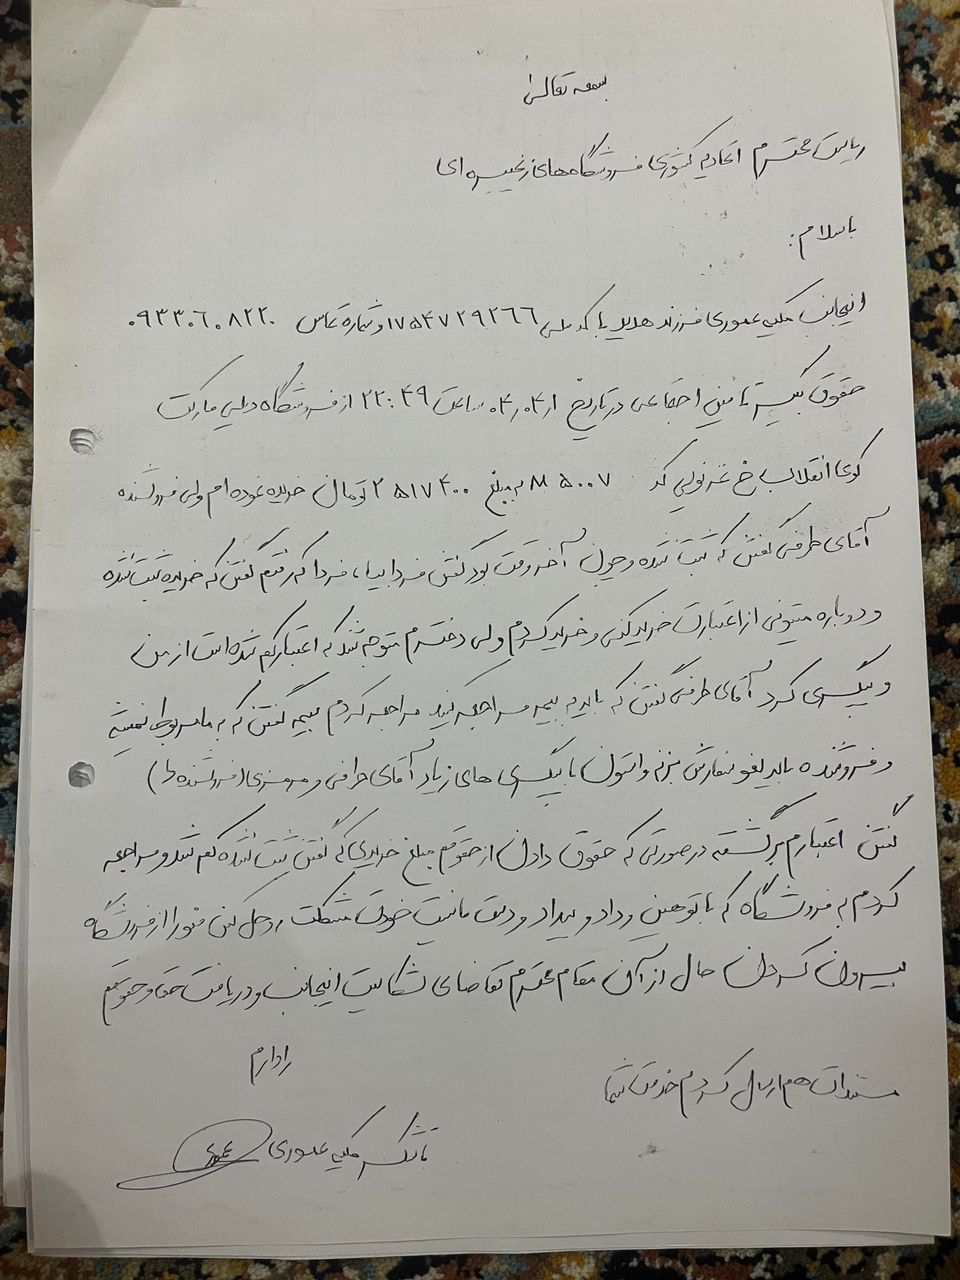 بسمه تعالی
ریاست محترم اتحادیه کشوری فروشگاه‌های زنجیره ای
با سلام:
اینجانب ملکیه عموری فرزند هدید با کد ملی ۱۷۵۴۷۲۹۲۶۶ و شماره تماس ۰۹۳۳۰۶۰۸۲۲۰
حقوق بگیر تامین اجتماعی در تاریخ ۰۴٫۰۴٫۱ ساعت ۲۲:۴۹ از فروشگاه دیلی مارکت
کوی انقلاب خ غزنوی کد M۵۰۰۷ به مبلغ ۲۵۱۷۴۰۰ تومان خرید نموده ام ولی فروشنده
آقای طرفی گفتن که ثبت نشده و چون آخر وقت بود گفتن فردا بیا، فردا که رفتم گفتن که خرید ثبت نشده
و دوباره میتونی از اعتبارت خرید کنی و خرید کردم ولی دخترم متوجه شد که اعتبار کم شده است از من
و پیگیری کرد آقای طرفی گفتن که باید به بیمه مراجعه کنید مراجعه کردم بیمه گفتن که به ما مربوط نمیشه
و فروشنده باید لغو سفارش بزنه واستون با پیگیری های زیاد آقای طرفی و هرمزی (فروشنده ها)
گفتن اعتبارم برگشته درصورتی که حقوق دادن از حقوقم مبلغ خریدی که گفتن ثبت نشده کم شد و مراجعه
کردم به فروشگاه که با توهین و داد و بیداد و مشکلت رو حل کن منو از فروشگاه
بیرون کردن حال از آن مقام محترم تقاضای شکایت اینجانب و دریافت حق و حقوقم
را دارم
مستندات هم ارسال کردم خدمت شما
با تشکر ملکیه عموری عموری